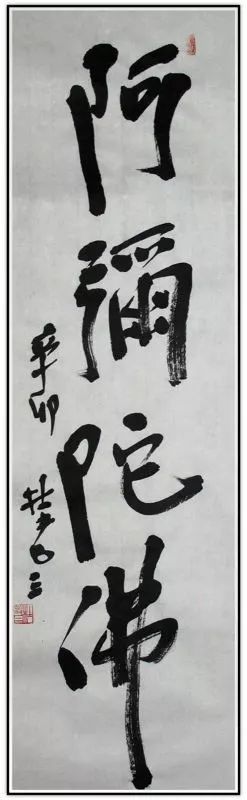 阿彌陀佛
辛卯